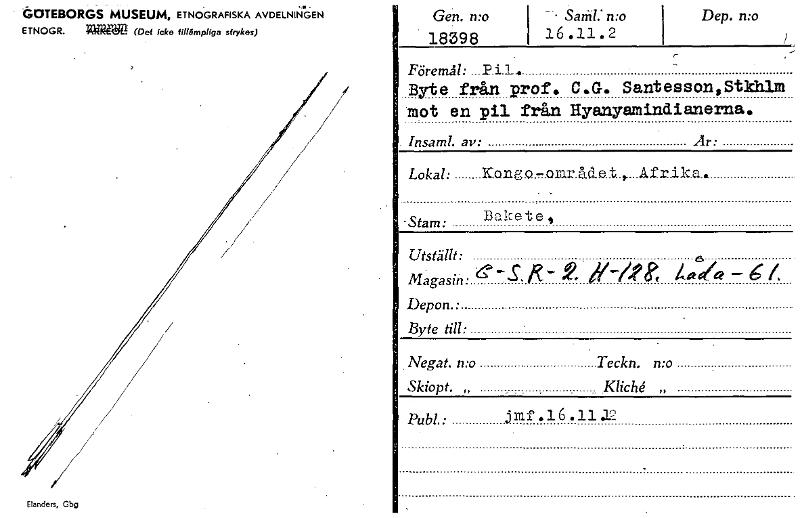 GÖTEBORGS MUSEUM, ETNOGRAFISKA AVDELNINGEN
ETNOGR. ARKEOL. (Det icke tillämpliga strykes)
Elanders, Gbg
Gen. n:o Saml. n:o Dep. n:o
18398 16.11.2
Föremål: Pil.
Byte från prof. C.G. Santesson, Stkhlm
mot en pil från Hyanyamindianerna.
Insaml. av: År:
Lokal: Kongo-området, Afrika.
Stam: Bakete,
Utställt:
Magasin: G-S.R-2. H-128. Låda-61.
Depon.:
Byte till:
Negat. n:o Teckn. n:o
Skiopt. „ Kliché „
Publ.: jmf.16.11.12